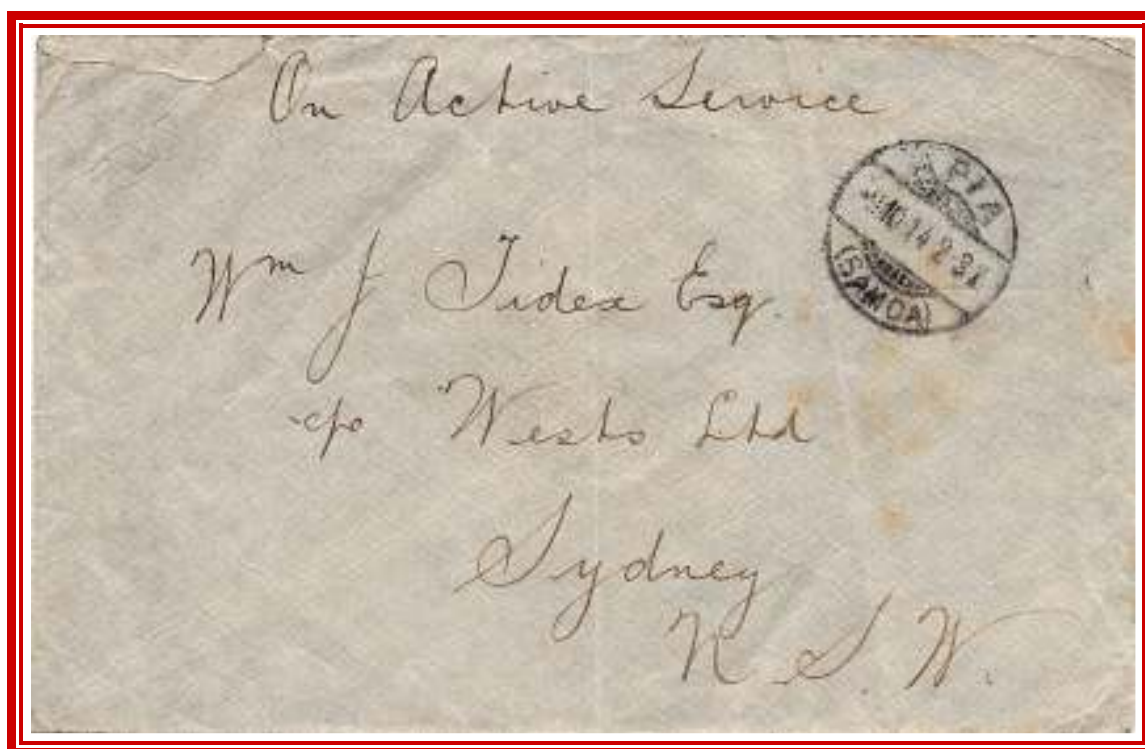 On Active Service
APIA
10.14.2-3
(SAMOA)
Wm J Tidex Esq.
c/o Wests Ltd
Sydney
N. S. W.